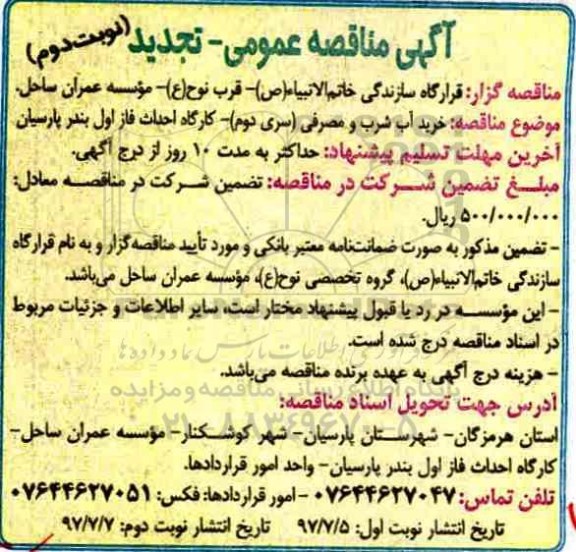 آگهی مناقصه عمومی- تجدید (نوبت دوم)
مناقصه گزار: قرارگاه سازندگی خاتم‌الانبیاء(ص)- قرب نوح(ع)- مؤسسه عمران ساحل.
موضوع مناقصه: خرید آب شرب و مصرفی (سری دوم)- کارگاه احداث فاز اول بندر پارسیان
آخرین مهلت تسلیم پیشنهاد: حداکثر به مدت ۱۰ روز از درج آگهی.
مبلغ تضمین شرکت در مناقصه: تضمین شرکت در مناقصه معادل:
۵۰۰/۰۰۰/۰۰۰ ریال.
- تضمین مذکور به صورت ضمانت‌نامه معتبر بانکی و مورد تأیید مناقصه‌گزار و به نام قرارگاه
سازندگی خاتم‌الانبیاء(ص)، گروه تخصصی نوح(ع)، مؤسسه عمران ساحل می‌باشد.
- این مؤسسه در رد یا قبول پیشنهاد مختار است، سایر اطلاعات و جزئیات مربوط
در اسناد مناقصه درج شده است.
- هزینه درج آگهی به عهده برنده مناقصه می‌باشد.
پایگاه اطلاع رسانی مناقصه و مزایده
آدرس جهت تحویل اسناد مناقصه:
۰۲۱-۸۸۳۴۹۶۷۰-۵
استان هرمزگان- شهرستان پارسیان- شهر کوشکنار- مؤسسه عمران ساحل-
کارگاه احداث فاز اول بندر پارسیان- واحد امور قراردادها.
تلفن تماس: ۰۷۶۴۴۶۲۷۰۴۷ - امور قراردادها: فکس: ۰۷۶۴۴۶۲۷۰۵۱
تاریخ انتشار نوبت اول: ۹۷/۷/۵ تاریخ انتشار نوبت دوم: ۹۷/۷/۷